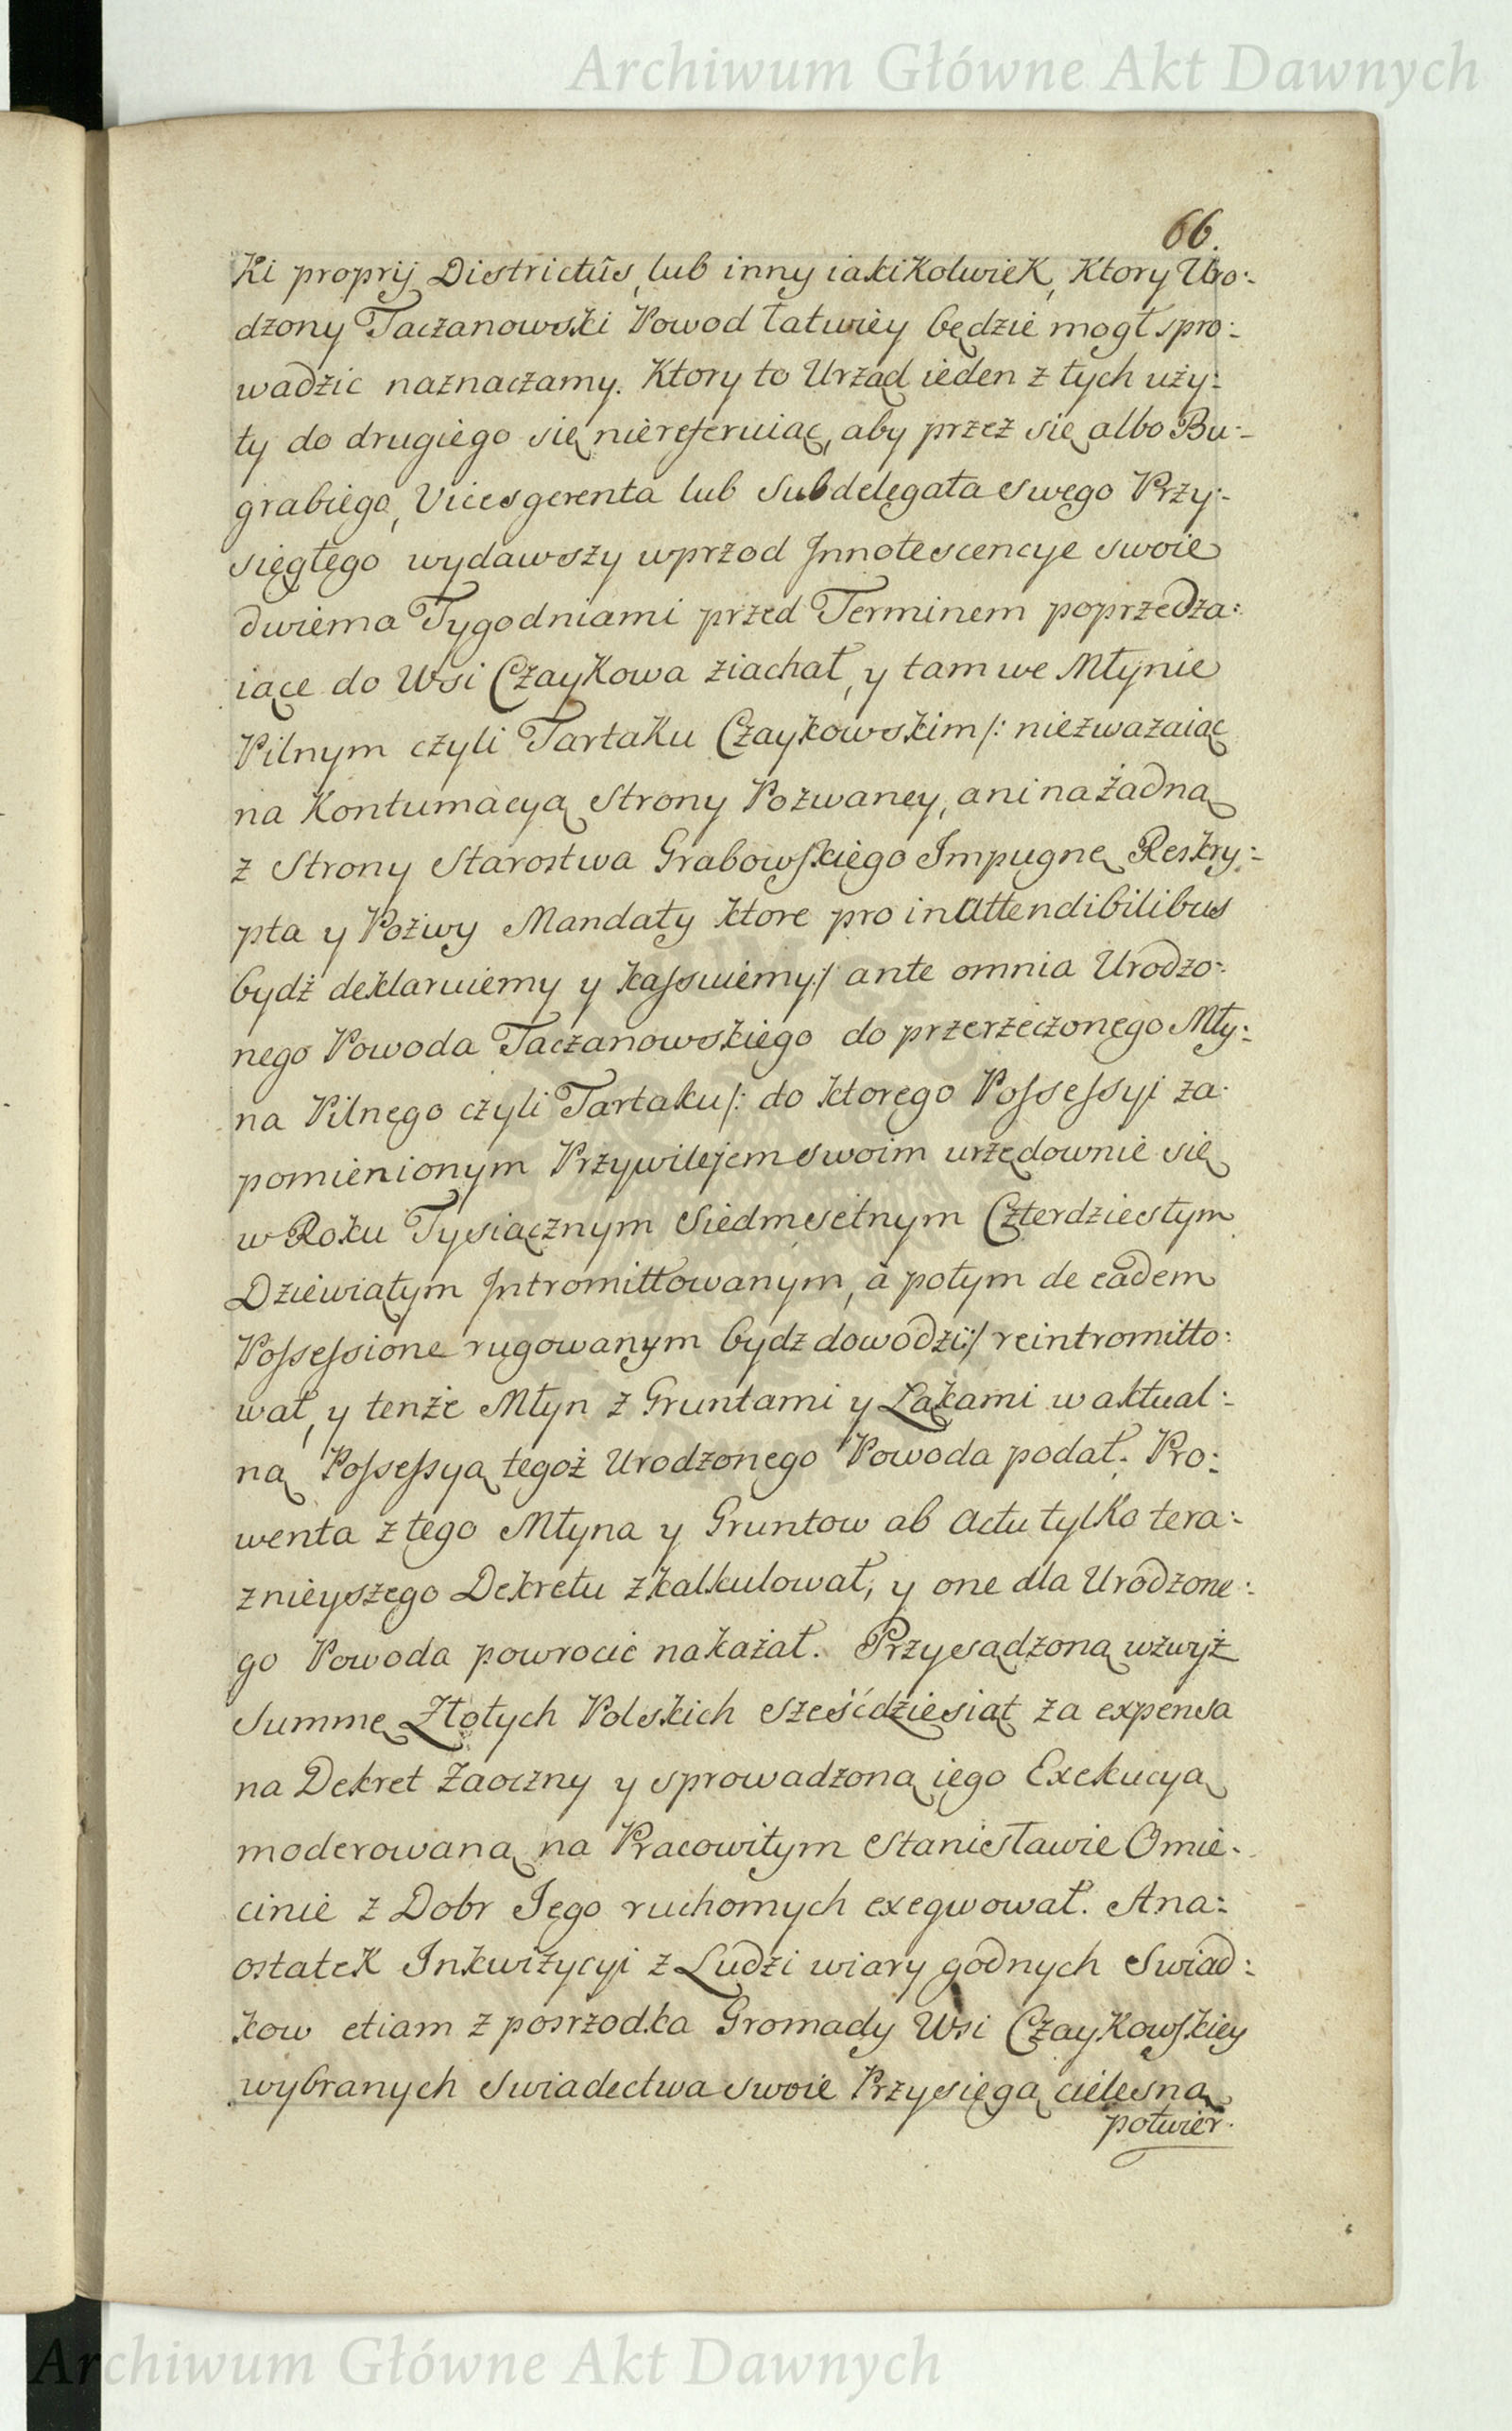 Archiwum Główne Akt Dawnych
66.
ki proprij Districtûs, lub inny iakikolwiek, ktory Uro:
dzony Taczanowski Powod łatwiey będzie mogł spro:
wadzic naznaczamy. Ktory to Urząd ieden z tych uży:
ty do drugiego się niereferuiąc, aby przez się albo Bu:
grabiego, Vicesgerenta lub Subdelegata swego Przy:
sięgłego wydawszy wprzod Innotescencye swoie
dwiema Tygodniami przed Terminem poprzedza:
iące do Wsi Czaykowa ziachał, y tam we Młynie
Pilnym czyli Tartaku Czaykowskim /: niezwazaiąc
na Kontumacyą Strony Pozwaney, ani na żadną
z Strony Starostwa Grabowskiego Impugnę Reskry:
pta y Pozwy Mandaty ktore pro inattendibilibus
bydź deklaruiemy y kassuiemy:/ ante omnia Urodzo:
nego Powoda Taczanowskiego do przerzeczonego Mły:
na Pilnego czyli Tartaku /: do ktorego Possessyi za:
pomienionym Przywilejem swoim urzędownie się
w Roku Tysiącznym Siedmsetnym Czterdziestym
Dziewiątym Intromittowanym, à potym de eadem
Possessione rugowanym bydz dowodzi:/ reintromitto:
wał, y tenże Młyn z Gruntami y Łąkami w aktual:
ną Possessyą tegoż Urodzonego Powoda podał. Pro:
wenta z tego Młyna y Gruntow ab actu tylko tera:
znieyszego Dekretu zkalkulował, y one dla Urodzone:
go Powoda powrocić nakazał. Przysądzoną wzwyż
Summę Złotych Polskich sześćdziesiąt za expensa
na Dekret Zaoczny y sprowadzoną iego Exekucyą
moderowaną na Pracowitym Stanisławie Omie:
cinie z Dobr Jego ruchomych exeqwował. Ana:
ostatek Inkwizycyi z Ludzi wiary godnych Swiad:
kow etiam z posrzodka Gromady Wsi Czaykowskiey
wybranych swiadectwa swoie Przysięgą cielesną
potwier:
Archiwum Główne Akt Dawnych